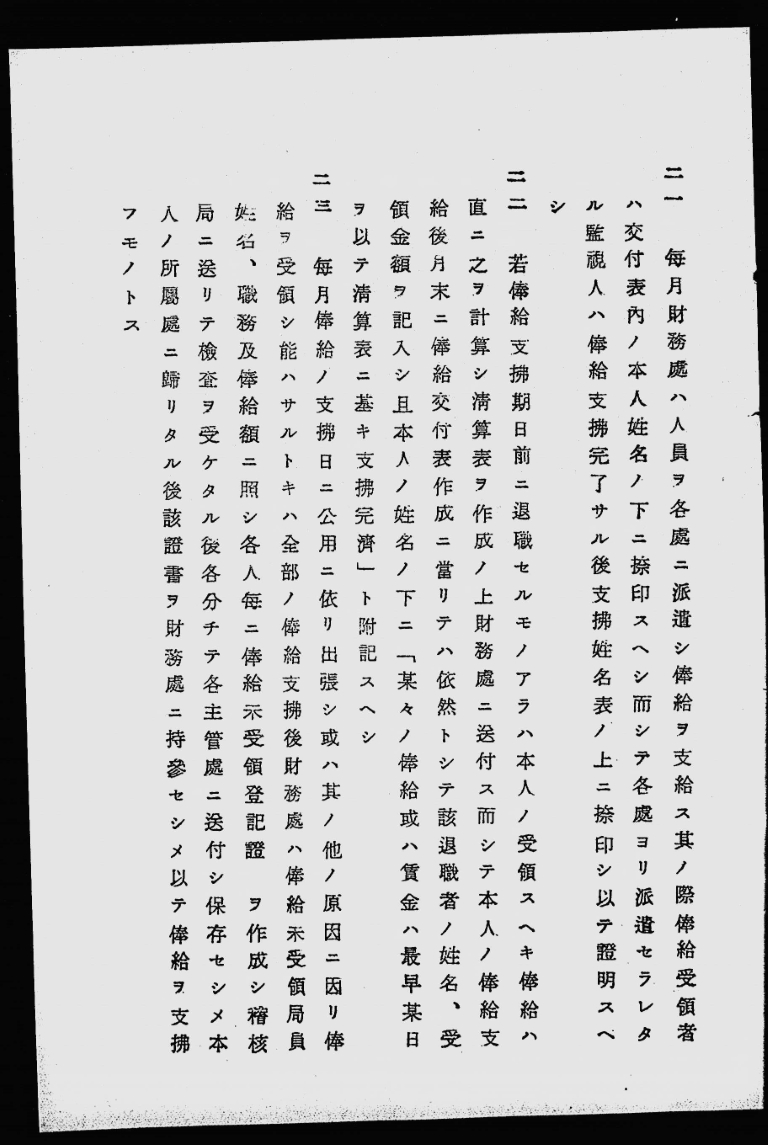 二一　每月財務處ハ人員ヲ各處ニ派遣シ俸給ヲ支給ス其ノ際俸給受領者
ハ交付表內ノ本人姓名ノ下ニ捺印スヘシ而シテ各處ヨリ派遣セラレタ
ル監視人ハ俸給支拂完了サル後支拂姓名表ノ上ニ捺印シ以テ證明スヘ
シ
二二　若俸給支拂期日前ニ退職セルモノアラハ本人ノ受領スヘキ俸給ハ
直ニ之ヲ計算シ淸算表ヲ作成ノ上財務處ニ送付ス而シテ本人ノ俸給支
給後月末ニ俸給交付表作成ニ當リテハ依然トシテ該退職者ノ姓名、受
領金額ヲ記入シ且本人ノ姓名ノ下ニ「某々ノ俸給或ハ賃金ハ最早某日
ヲ以テ淸算表ニ基キ支拂完濟」ト附記スヘシ
二三　每月俸給ノ支拂日ニ公用ニ依リ出張シ或ハ其ノ他ノ原因ニ因リ俸
給ヲ受領シ能ハサルトキハ全部ノ俸給支拂後財務處ハ俸給未受領局員
姓名、職務及俸給額ニ照シ各人每ニ俸給未受領登記證　ヲ作成シ稽核
局ニ送リテ檢査ヲ受ケタル後各分チテ各主管處ニ送付シ保存セシメ本
人ノ所屬處ニ歸リタル後該證書ヲ財務處ニ持參セシメ以テ俸給ヲ支拂
フモノトス